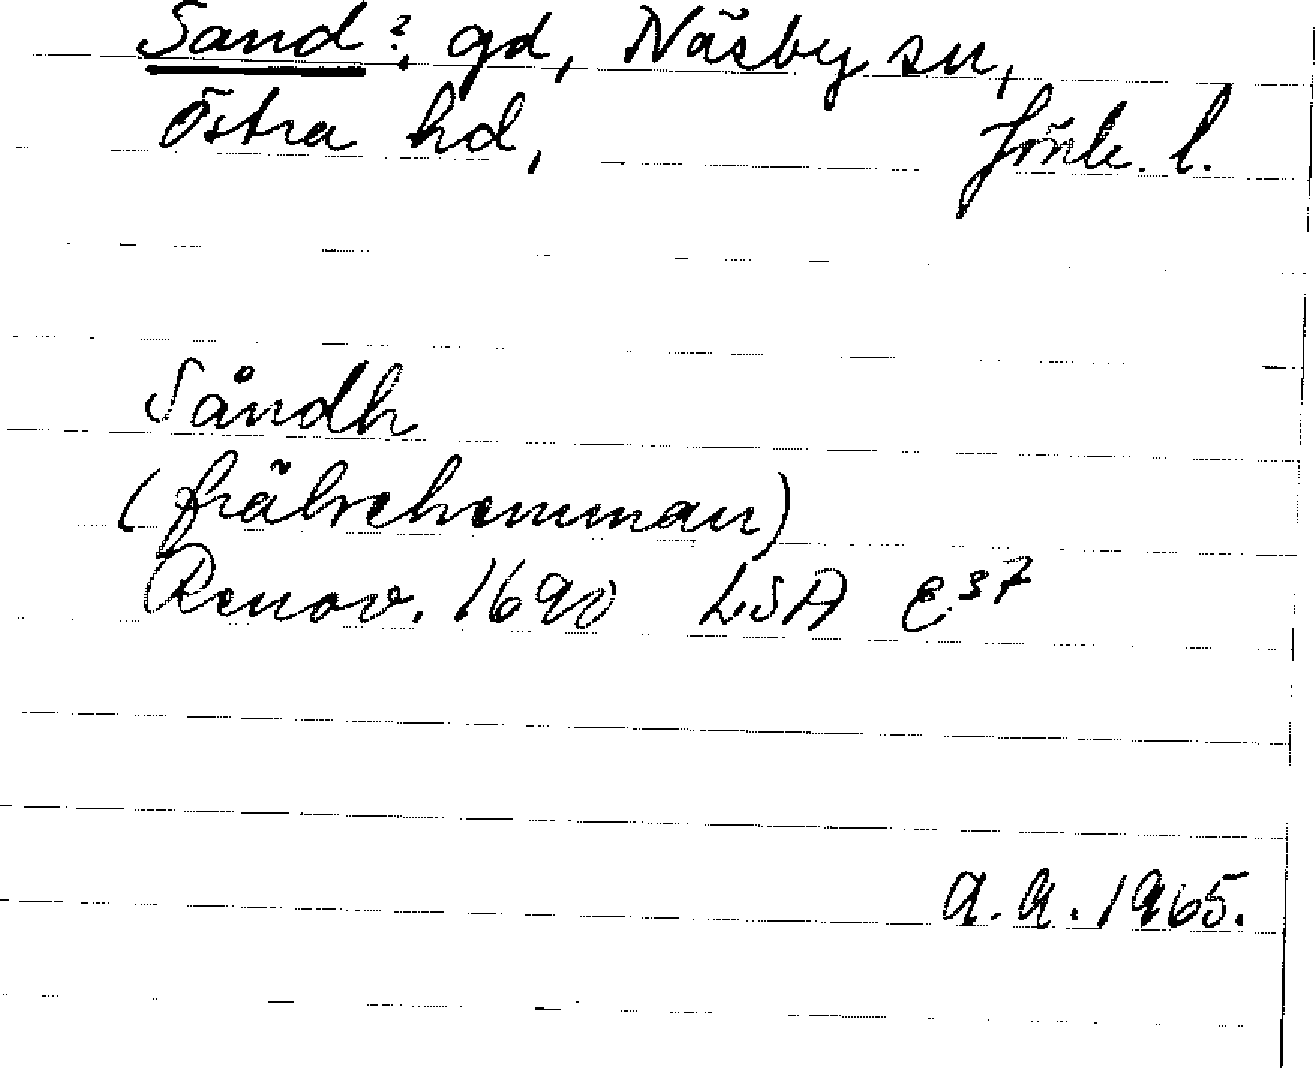 Sand?, gd, Näsby sn,
Östra hd, Jönk. l.
Såndh
(frälsehemman)
Renov. 1690 LSA E37
A.A. 1965.